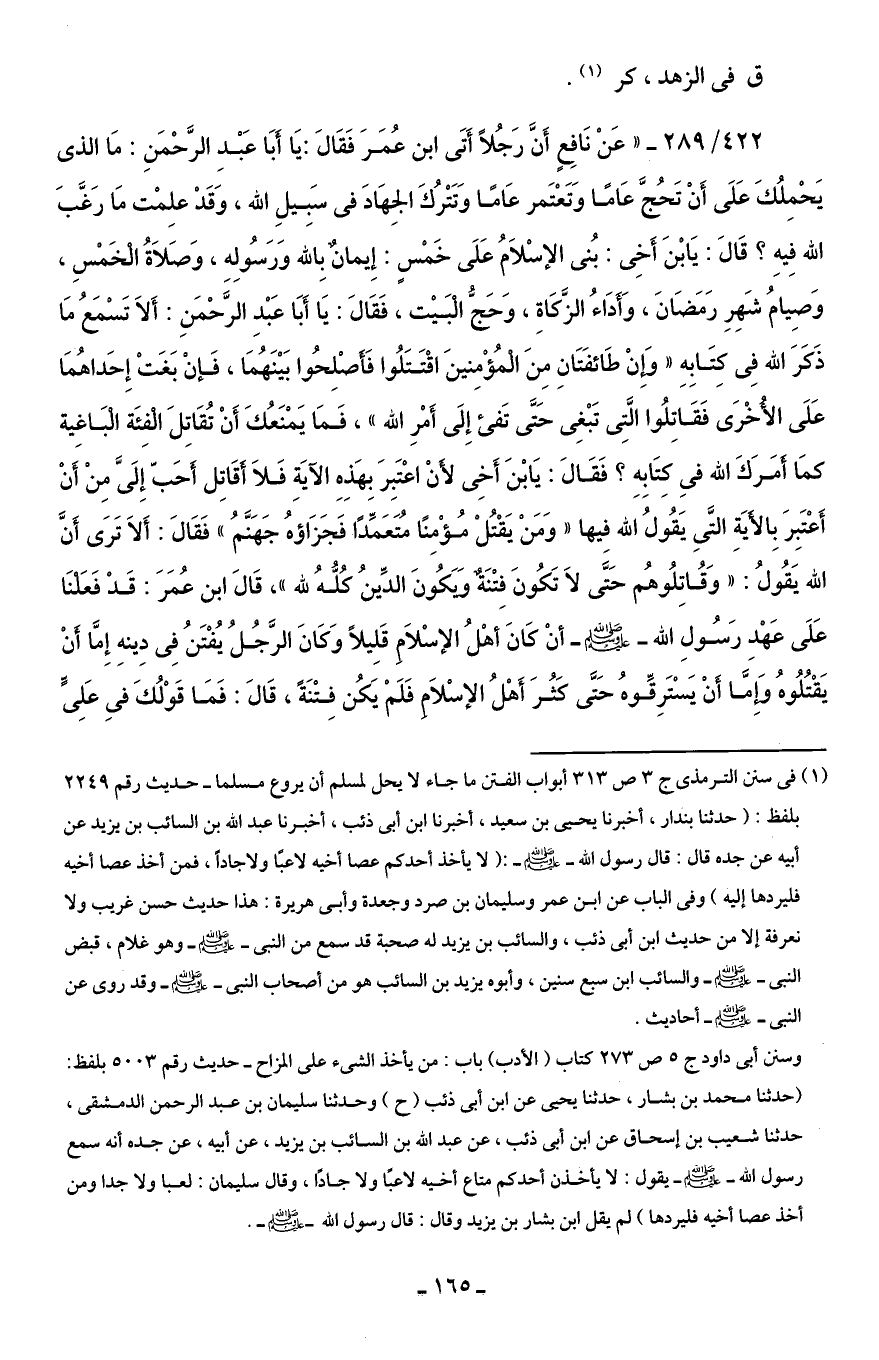 ق فى الزهد ، كر (١) .
٤٢٢/ ٢٨٩ ـ « عَنْ نَافِعٍ أَنَّ رَجُلاً أَتَى ابن عُمَرَ فَقَالَ :يَا أَبَا عَبْدِ الرَّحْمَنِ : مَا الذى
يَحْمِلُكَ عَلَى أَنْ تَحُجَّ عَامًا وَتَعْتَمِر عَامًا وَتَتْرُكَ الجِهَادَ فى سَبِيلِ الله ، وَقَدْ علِمْت مَا رَغَّبَ
الله فِيهِ ؟ قَالَ : يَابْنَ أَخِى : بُنِى الإسْلاَمُ عَلَى خَمْسٍ : إِيمَانٌ بِالله وَرَسُولِهِ ، وَصَلاَةُ الْخَمْسِ ،
وَصِيامُ شَهْرِ رَمَضَانَ ، وَأَدَاءُ الزَّكَاةِ ، وَحَجُّ الْبَيْت ، فَقَالَ : يَا أَبَا عَبْدِ الرَّحْمَنِ : أَلاَ تَسْمَعُ مَا
ذَكَرَ الله فِى كِتَابِهِ « وَإِنْ طَائِفَتَانِ مِنَ الْمُؤْمِنِينَ اقْتَتَلُوا فَأَصْلِحُوا بَيْنَهُمَا ، فَإِنْ بَغَتْ إِحْدَاهُمَا
عَلَى الأُخْرَى فَقَاتِلُوا الَّتِى تَبْغِى حَتَّى تَفِئ إِلَى أَمْرِ الله » ، فَمَا يَمْنَعُكَ أَنْ تُقَاتِلَ الْفِئَة الْبَاغِية
كمَا أَمَرَكَ الله فِى كِتَابِهِ ؟ فَقَالَ : يَابْنَ أَخِى لأَنْ اعْتَبِرَ بِهَذِهِ الآيَةِ فَلاَ أقَاتِل أَحَبّ إِلَىَّ مِنْ أَنْ
أَعْتَبِرَ بِالأَيَةِ الَّتِى يَقُولُ الله فِيها « وَمَنْ يَقْتُلْ مُؤْمِنًا مُتَعَمِّدًا فَجَزَاؤهُ جَهَنَّمُ » فَقَالَ : أَلاَ تَرَى أَنَّ
الله يَقُولُ : « وَقَاتِلُوهُم حَتَّى لاَ تَكُونَ فِتْنَةٌ وَيَكُونَ الدِّينُ كُلُّهُ لله »، قَالَ ابن عُمَرَ : قَدْ فَعَلْنَا
عَلَى عَهْدِ رَسُولِ الله ـ ﷺ ـ أنْ كَانَ أَهْلُ الإسْلاَمِ قَلِيلاً وَكَانَ الرَّجُلُ يُفْتَنُ فِى دِينِهِ إِمَّا أَنْ
يَقْتُلُوهُ وَإِمَّا أَنْ يَسْتَرِقُّوهُ حَتَّى كَثُرَ أَهْلُ الإسْلاَمِ فَلَمْ يَكُن فِتْنَةً ، قَالَ : فَمَا قَوْلُكَ فِى عَلِىٍّ
(١) فى سنن الترمذى ج ٣ ص ٣١٣ أبواب الفتن ما جاء لا يحل لمسلم أن يروع مسلما ـ حديث رقم ٢٢٤٩
بلفظ : ( حدثنا بندار ، أخبرنا يحيى بن سعيد ، أخبرنا ابن أبى ذئب ، أخبرنا عبد الله بن السائب بن يزيد عن
أبيه عن جده قال : قال رسول الله ـ ﷺ ـ :( لا يأخذ أحدكم عصا أخيه لاعبًا ولاجاداً ، فمن أخذ عصا أخيه
فليردها إليه ) وفى الباب عن ابن عمر وسليمان بن صرد وجعدة وأبى هريرة : هذا حديث حسن غريب ولا
نعرفة إلا من حديث ابن أبى ذئب ، والسائب بن يزيد له صحبة قد سمع من النبى ـ ﷺ ـ وهو غلام ، قبض
النبى ـ ﷺ ـ والسائب ابن سبع سنين ، وأبوه يزيد بن السائب هو من أصحاب النبى ـ ﷺ ـ وقد روى عن
النبى ـ ﷺ ـ أحاديث .
وسنن أبى داود ج ٥ ص ٢٧٣ كتاب ( الأدب) باب : من يأخذ الشىء على المزاح ـ حديث رقم ٥٠٠٣ بلفظ:
(حدثنا محمد بن بشار ، حدثنا يحيى عن ابن أبى ذئب ( ح ) وحدثنا سليمان بن عبد الرحمن الدمشقى ،
حدثنا شعيب بن إسحاق عن ابن أبى ذئب ، عن عبد الله بن السائب بن يزيد ، عن أبيه ، عن جده أنه سمع
رسول الله ـ ﷺ ـ يقول : لا يأخذن أحدكم متاع أخيه لاعبًا ولا جادًا ، وقال سليمان : لعبا ولا جدا ومن
أخذ عصا أخيه فليردها ) لم يقل ابن بشار بن يزيد وقال : قال رسول الله ـ ﷺ ـ .
ـ ١٦٥ ـ